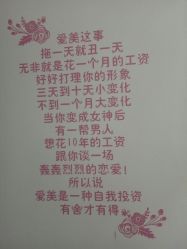 爱美这事
拖一天就丑一天
无非就是花一个月的工资
好好打理你的形象
三天到十天小变化
不到一个月大变化
当你变成女神后
有一帮男人
想花10年的工资
跟你谈一场
轰轰烈烈的恋爱!
所以说
爱美是一种自我投资
有舍才有得